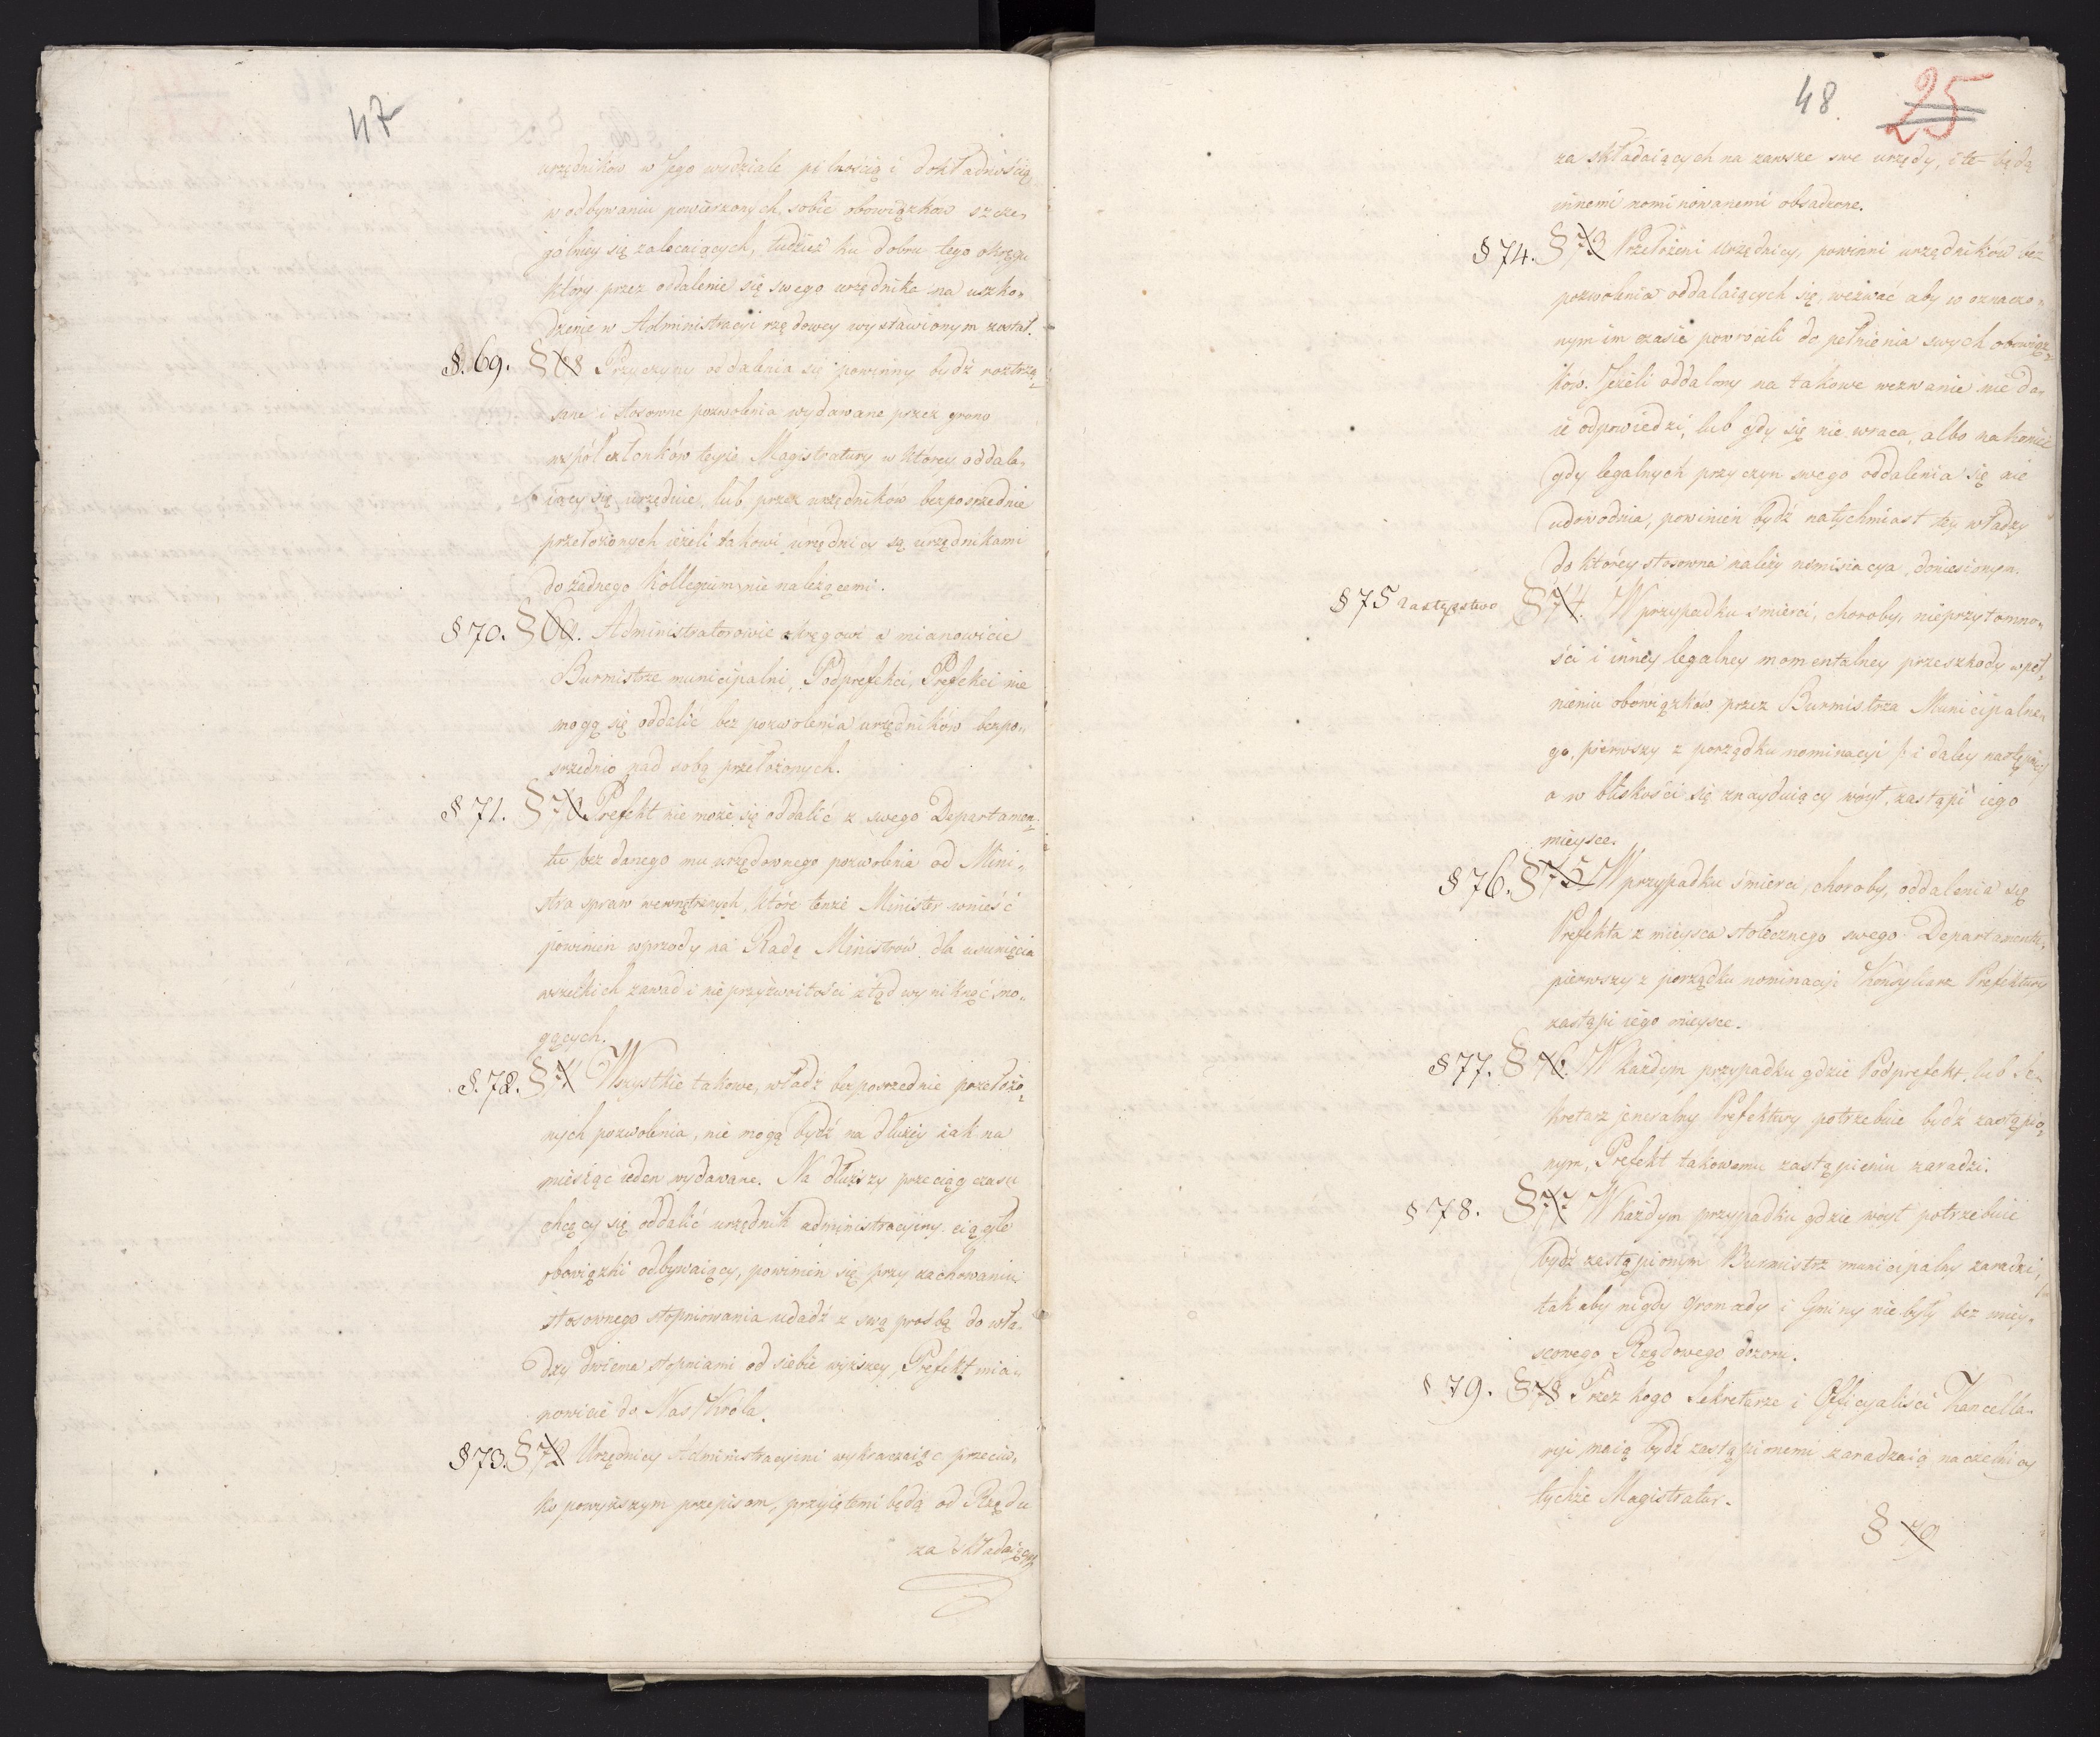 47
urzędników w Jego wydziale pilnością i dokładnością
w odbywaniu powierzonych sobie obowiązków szcze„
gólniey się zalecaiących, tudzież ku dobru tego okręgu
który przez oddalenie się swego urzędnika na uszko„
dzenie w Administracyi rządowey wystawionym został.
§. 69. § 68 Przyczyny oddalenia się powinny bydź roztrzą„
sane i stosowne pozwolenia wydawane przez grono
współczłonków teyże Magistratury w którey oddala„
iący się urzęduie, lub przez urzędników bezposrzednie
przełożonych ieżeli takowi urzędnicy są urzędnikami
do żadnego Kollegium nie należącemi.
§ 70. § 69. Administratorowie okręgowi a mianowicie
Burmistrze municipalni, Podprefekci, Prefekci nie
mogą się oddalić bez pozwolenia urzędników bezpo„
srzednio nad sobą przełożonych.
§ 71. § 70 Prefekt nie może się oddalić z swego Departamen„
tu bez danego mu urzędownego pozwolenia od Mini„
stra spraw wewnętrznych, które tenże Minister wnieść
powinien wprzody na Radę Ministrów dla usunięcia
wszelkich zawad i nieprzyzwoitości ztąd wyniknąć mo„
gących.
§. 72. § 71 Wszystkie takowe, władz bezposrzednie przełożo„
nych pozwolenia, nie mogą bydź na dłużey iak na
miesiąc ieden wydawane. Na dłuższy przeciąg czasu
chcący się oddalić urzędnik administracyiny ciągłe
obowiązki odbywaiący, powinien się przy zachowaniu
stosownego stopniowania udadź z swą prośbą do wła„
dzy dwiema stopniami od siebie wyższey, Prefekt mia„
nowicie do Nas Króla.
§ 73. § 72 Urzędnicy Administracyini wykraczaiąc przeciw„
ko powyższym przepisom, przyiętemi będą od Rządu
za składaiących
48. 25
za składaiących na zawsze swe urzędy, i te będą
innemi nominowanemi obsadzone.
§ 74. § 73 Przełożeni Urzędnicy, powinni urzędników bez
pozwolenia oddalaiących się, wezwać aby w oznaczo„
nym im czasie powrócili do pełnienia swych obowiąz„
ków. Jeżeli oddalony na takowe wezwanie nie da„
ie odpowiedzi, lub gdy się nie wraca, albo nakoniec
gdy legalnych przyczyn swego oddalenia się nie
udowodnia, powinien bydź natychmiast tey władzy
do którey stosowna należy nominacya, doniesionym.
§ 75 zastępstwo § 74. W przypadku smierci, choroby, nieprzytomno„
ści i inney legalney momentalney przeszkody w peł„
nieniu obowiązków przez Burmistrza Municipalne„
go, pierwszy z porządku nominacyi i daley następnie
a w bliskości się znayduiący wóyt, zastąpi iego
mieysce.
§ 76. § 75 W przypadku śmierci, choroby, oddalenia się
Prefekta z mieysca stołecznego swego Departamentu,
pierwszy z porządku nominacyi Konsyliarz Prefektury
zastąpi iego mieysce.
§ 77. § 76. W każdym przypadku gdzie Podprefekt, lub Se„
kretarz jeneralny Prefektury potrzebuie bydź zastąpio„
nym, Prefekt takowemu zastąpieniu zaradzi.
§ 78. § 77 W każdym przypadku gdzie wóyt potrzebuie
bydź zastąpionym Burmistrz municipalny zaradzi,
tak aby nigdy gromady i Gminy nie były bez miey„
scowego Rządowego dozoru.
§ 79. § 78 Przez kogo Sekretarze i Officyaliści Kancella„
ryi maią bydź zastąpionemi zaradzaią naczelnicy
tychże Magistratur.
§ 79